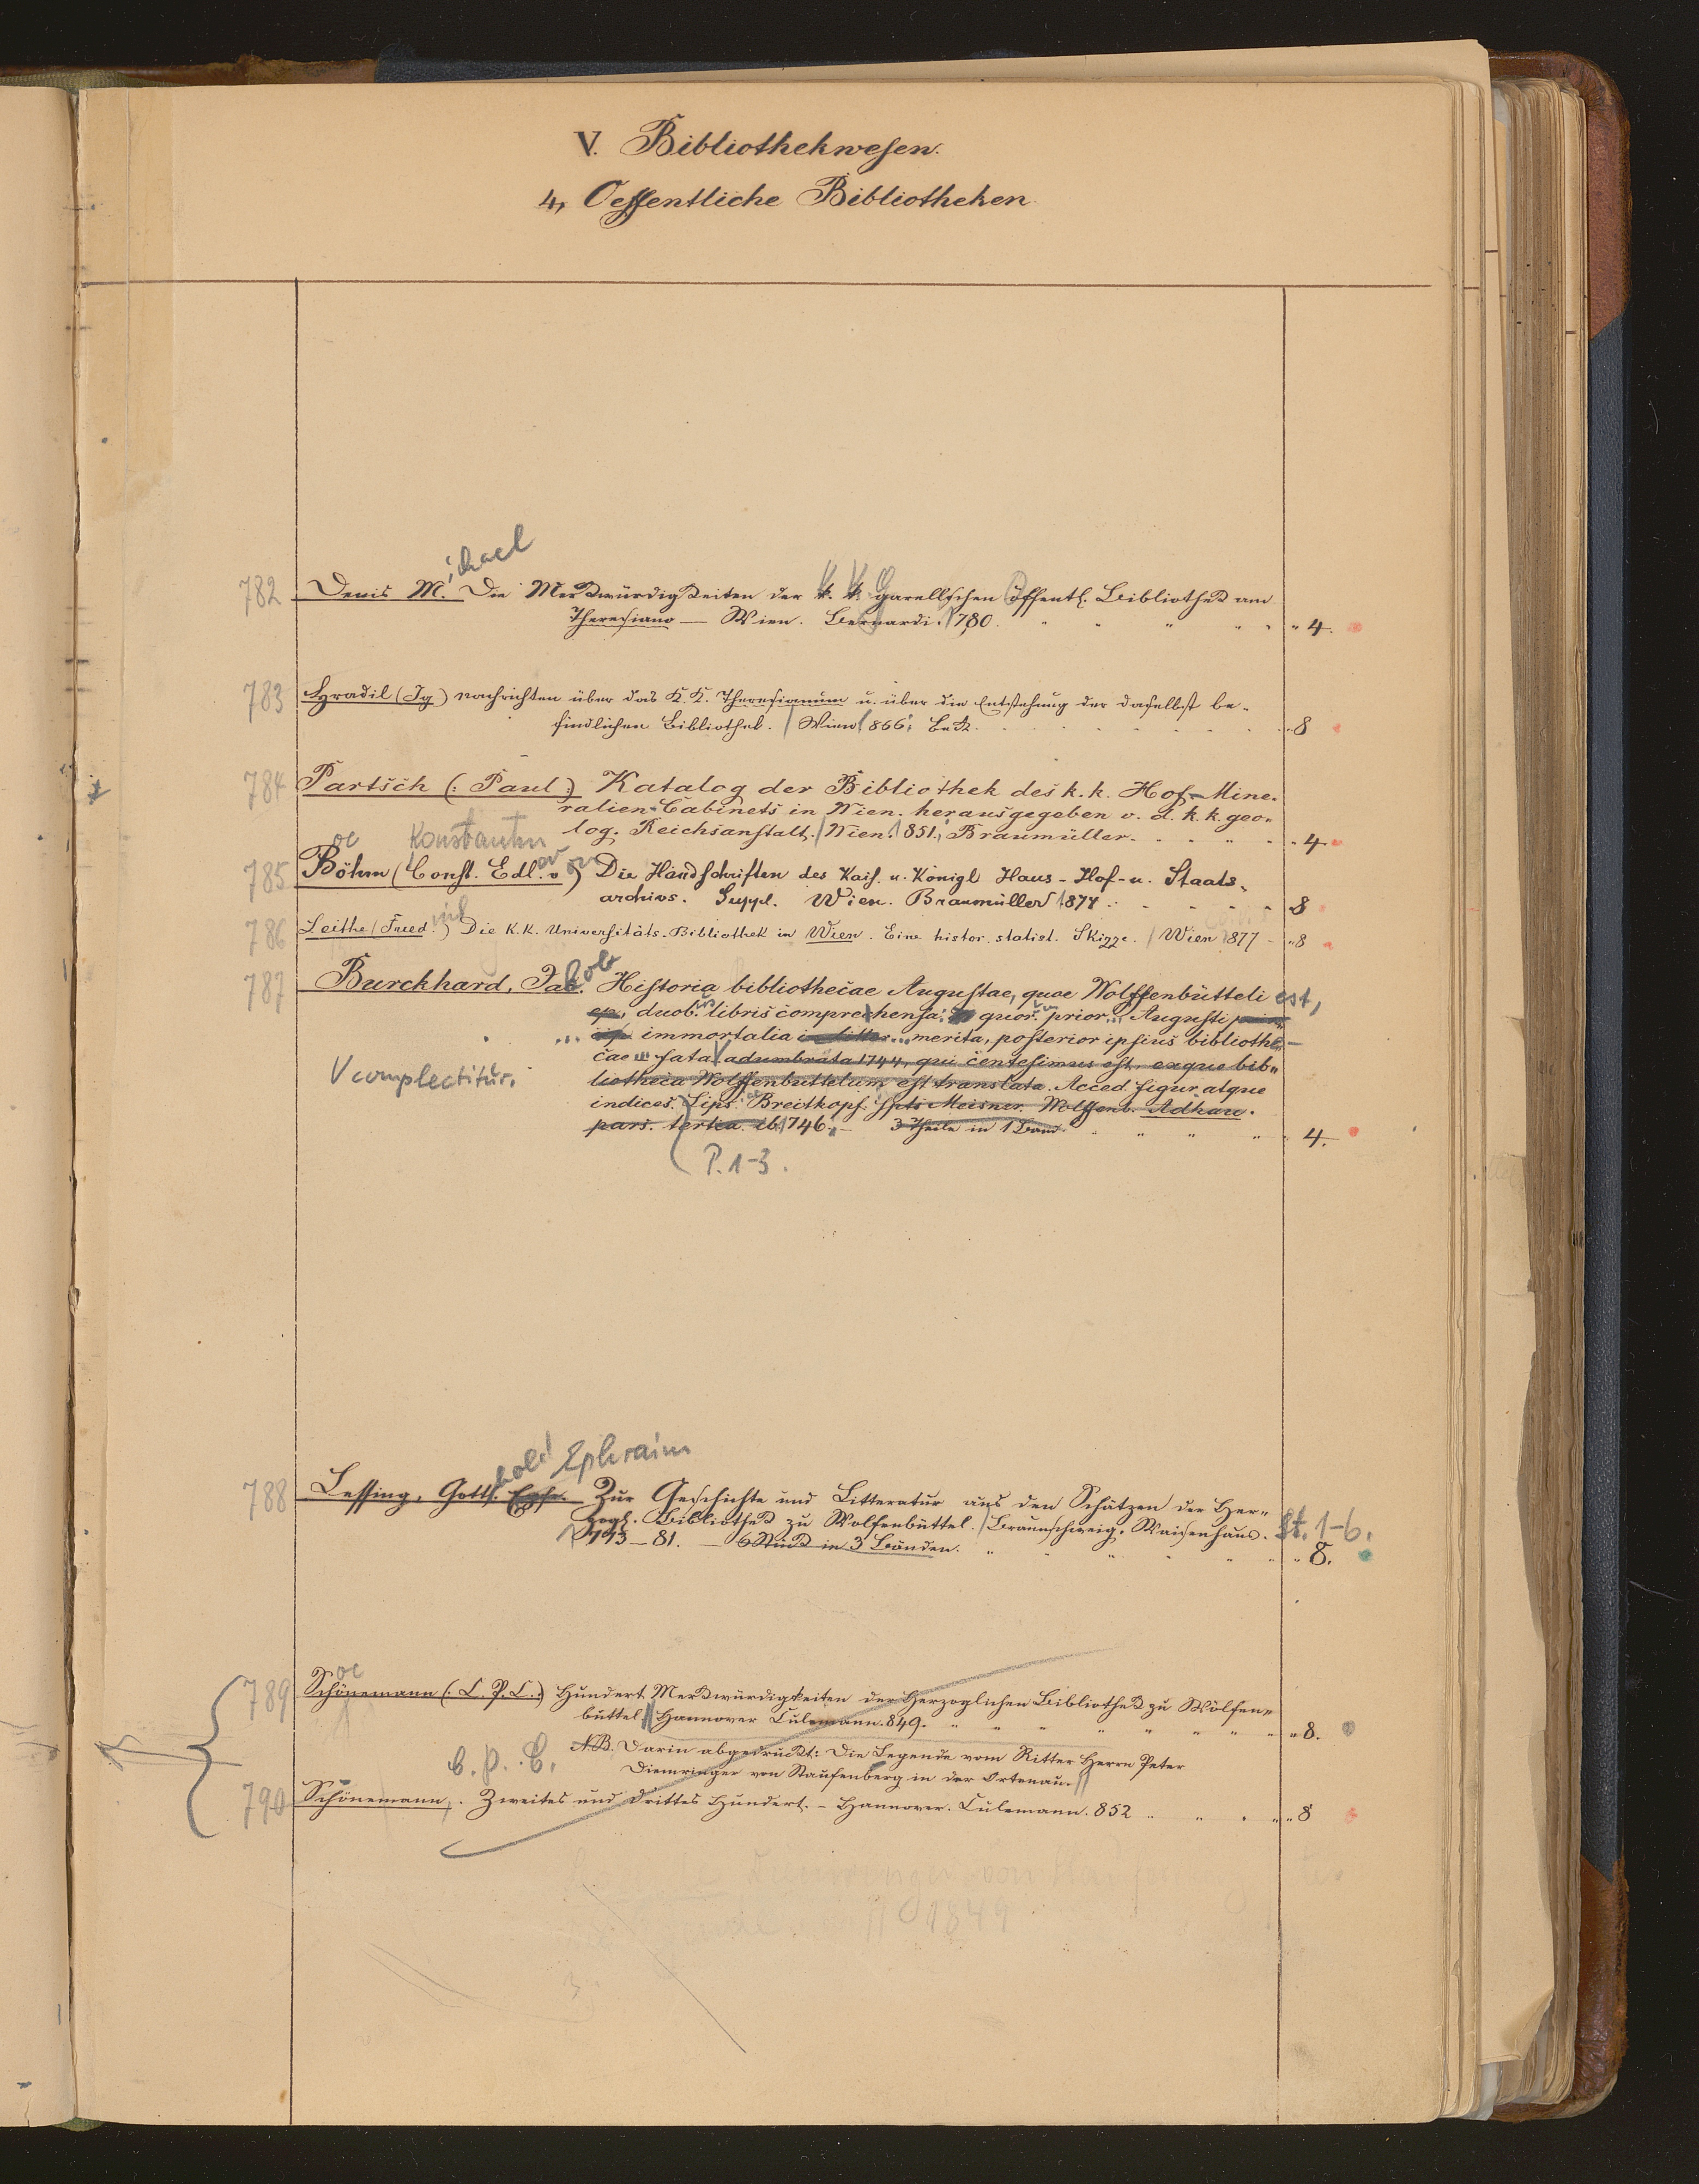 V. Bibliothekwesen.
4, Oeffentliche Bibliotheken.
ichael
782 Denis M. Die Merkwürdigkeiten der k. k. garellischen öffentl. Bibliothek am
Theresiano — Wien. Bernardi. 1780. " 4.
783 Hradil (Ig) Nachrichten über das K. K. Theresianum u. über die Entstehung der daselbst be-
findlichen Bibliothek. Wien 866. Beck. 8
784 Partsch (: Paul :) Katalog der Bibliothek des k. k. Hof-Mine-
ralien-Cabinets in Wien. herausgegeben v. d. k. k. geo-
log. Reichsanstalt. Wien. 851. Braumüller. 4
oe Konstantin
785 Böhm (Const. Edl. v.) Die Handschriften des Kais. u. Königl Haus- Hof- u. Staats-
archivs. Suppl. Wien. Braumüller 1874. 8
786 Leithe (Fried.) Die K. K. Universitäts-Bibliothek in Wien. Eine histor. statist. Skizze. Wien 1877 8
787 Burckhard, Jac. Historia bibliothecae Augustae, quae Wolffenbütteli est,
duob. libris comprehensa: quor. prior Augusti
... immortalia ... merita, posterior ipsius bibliothe-
cae fata adumbrata 1744, qui centesimus est, exque bib-
V complectitur.
liotheca Wolffenbuttelum est translata. Acced. figur. atque
indices. Lips. Breitkopf. Meisner. Wolffenb.
pars. tertia. ib. 1746. — 3 Theile in 1 Band 4.
P. 1-3.
hold Ephraim
788 Lessing, Gotth. Ephr. Zur Geschichte und Litteratur aus den Schätzen der Her-
zogl. Bibliothek zu Wolfenbüttel. Braunschweig, Waisenhaus. St. 1-6.
1773—81. — 6 Stück in 3 Bänden. 8.
oe
789 Schönemann (: C. P. C. :) Hundert Merkwürdigkeiten der Herzoglichen Bibliothek zu Wölfen-
büttel Hannover Culemann. 849. 8.
NB. Darin abgedruckt: Die Legende vom Ritter Herrn Peter
C. P. C.
Diemringer von Staufenberg in der Ortenau.
790 Schönemann, . Zweites und drittes Hundert. - Hannover. Culemann. 852 8